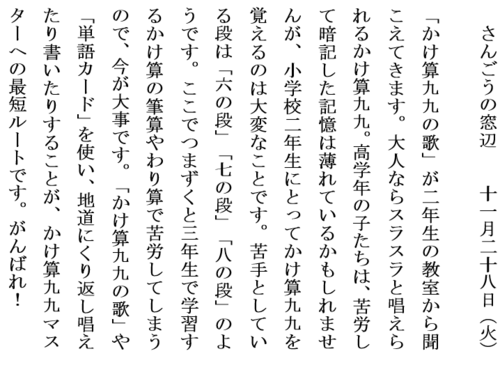 さんごうの窓辺　　十一月二十八日（火）
「かけ算九九の歌」が二年生の教室から聞
こえてきます。大人ならスラスラと唱えら
れるかけ算九九。高学年の子たちは、苦労し
て暗記した記憶は薄れているかもしれませ
んが、小学校二年生にとってかけ算九九を
覚えるのは大変なことです。苦手としてい
る段は「六の段」「七の段」「八の段」のよ
うです。ここでつまずくと三年生で学習す
るかけ算の筆算やわり算で苦労してしまう
ので、今が大事です。「かけ算九九の歌」や
「単語カード」を使い、地道にくり返し唱え
たり書いたりすることが、かけ算九九マス
ターへの最短ルートです。がんばれ！